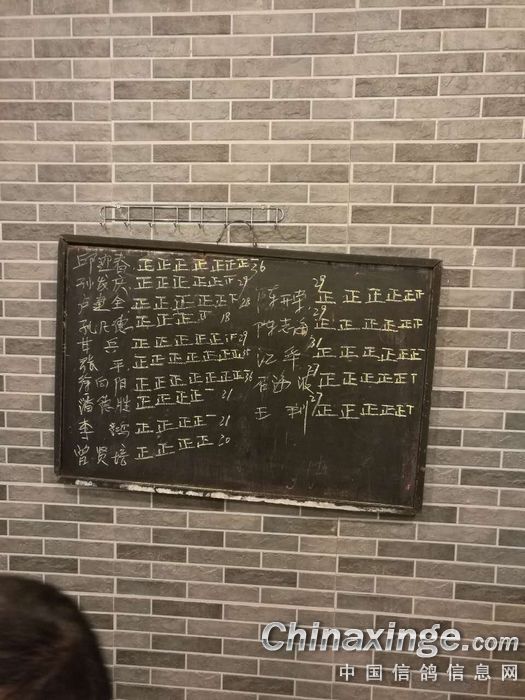 邱迎春 正正正正正正正一 36
刘发庆 正正正正正𤴓 29
卢建全 正正正正正下 28
孔凡德 正正正下 18
甘兵 正正正正正𤴓 29
张平 正正正正正正正 35
李向阳 正正正正正正正一 36
潘德胜 正正正正一 21
李鸿 正正正正一 21
曾贤培 正正正正 20
陈开荣 29 正正正正正
陈志 29 正正正正正
江华 31 正正正正正
正正正正正丅
王利 27 正正正正正丅
Chinaxinge.com
中国信鸽信息网